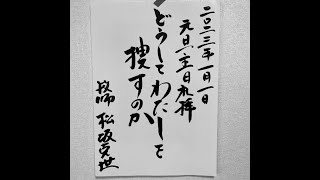 二〇二三年一月一日
元旦・主日礼拝
どうしてわたしを
捜すのか
牧師 松坂克世